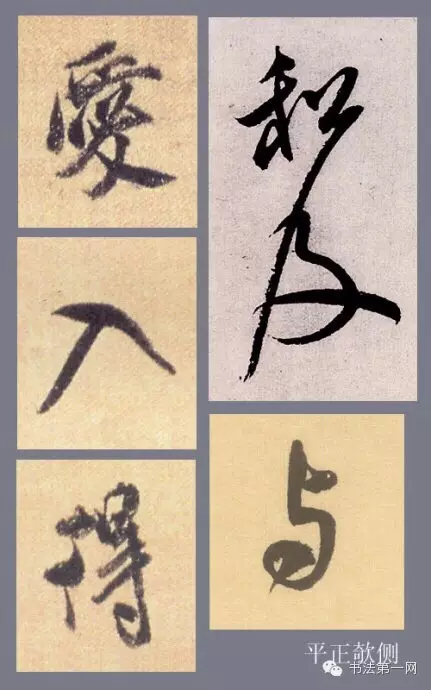 愛
入
得
及
与
平正欹侧
书法第一网